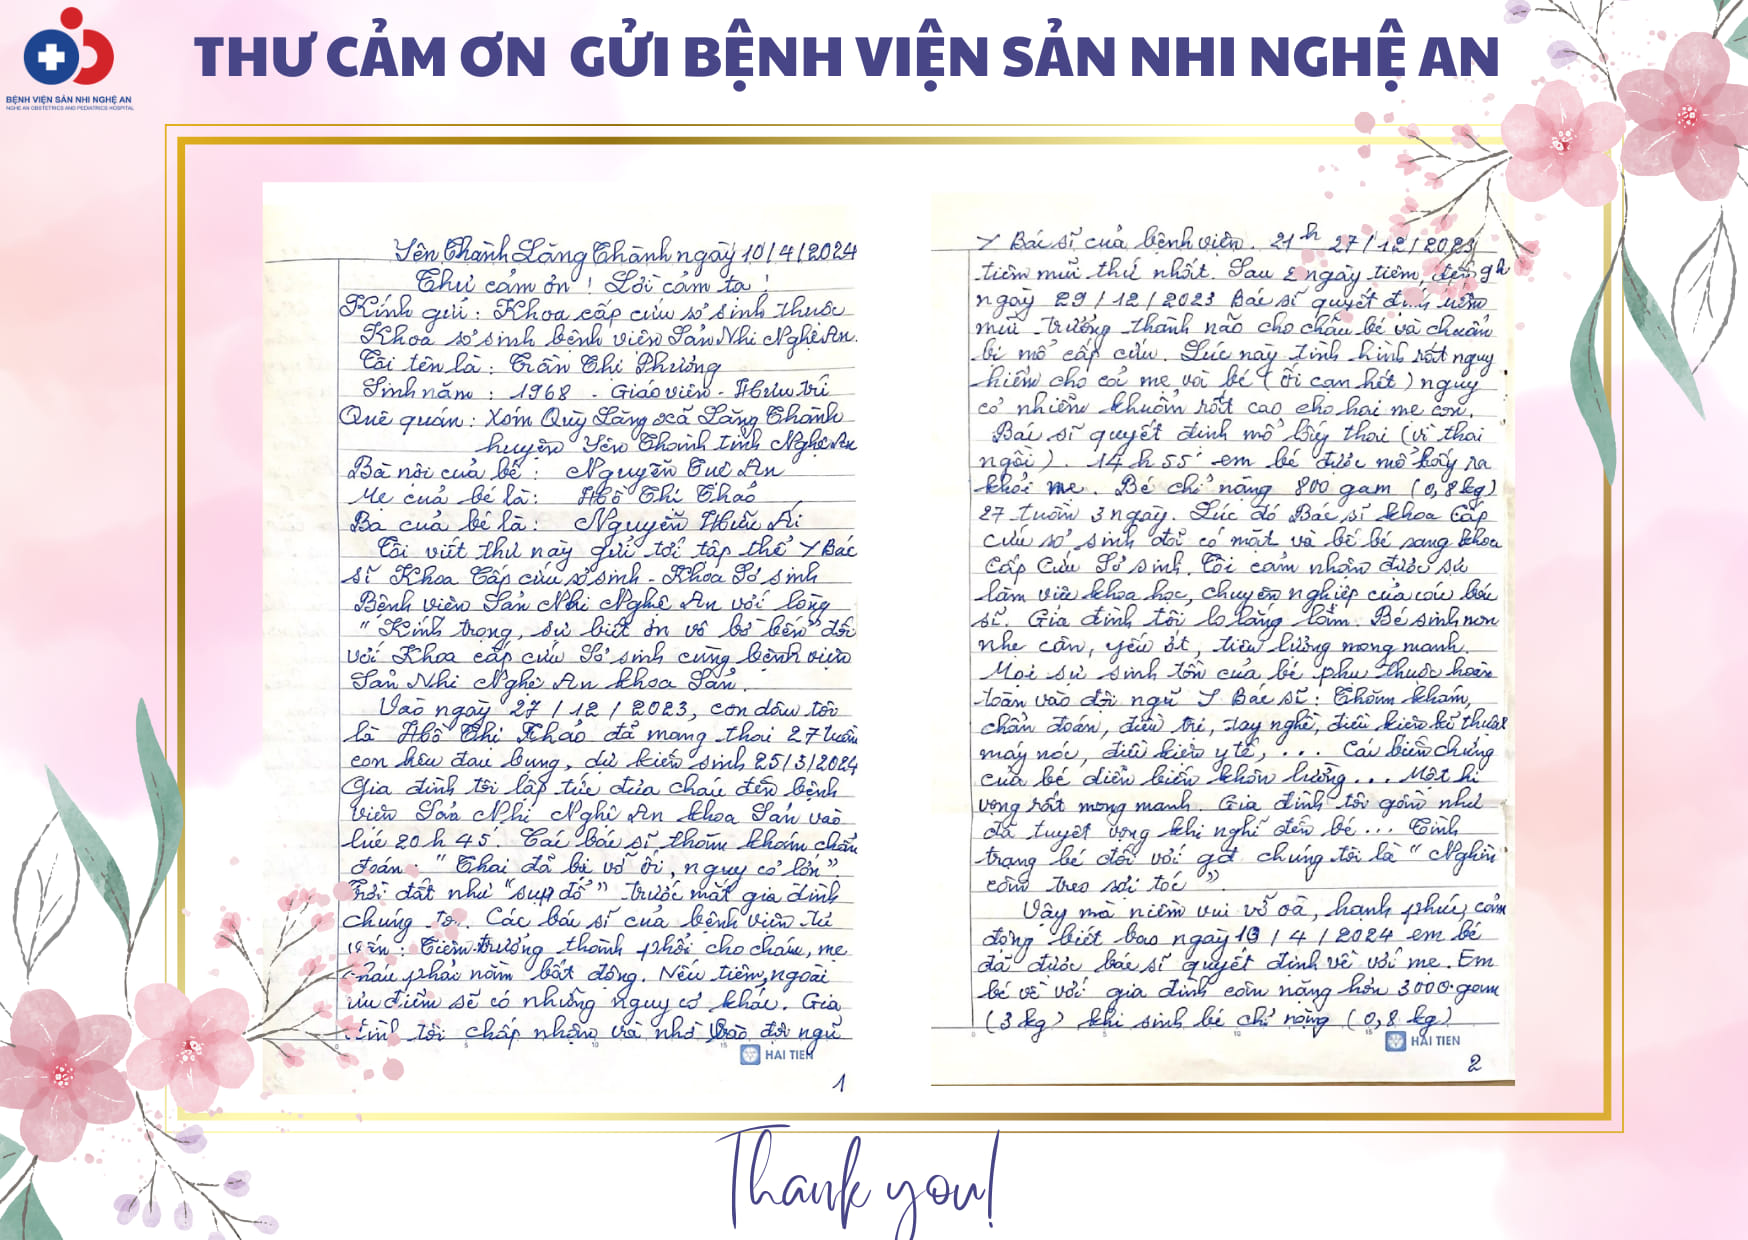 BỆNH VIỆN SẢN NHI NGHỆ AN
NGHE AN OBSTETRICS AND PEDIATRICS HOSPITAL
THƯ CẢM ƠN GỬI BỆNH VIỆN SẢN NHI NGHỆ AN
Yên Thành Lăng Thành ngày 10/4/2024
Thư cảm ơn! Lời cảm tạ!
Kính gửi: Khoa cấp cứu sơ sinh thuộc
Khoa sơ sinh bệnh viện Sản Nhi Nghệ An.
Tôi tên là: Trần Thị Phương
Sinh năm: 1968 - Giáo viên - Hưu trí
Quê quán: Xóm Quỳ Lăng xã Lăng Thành
huyện Yên Thành tỉnh Nghệ An
Bà nội của bé: Nguyễn Tuệ An
Mẹ của bé là: Hồ Thị Thảo
Ba của bé là: Nguyễn Hữu Ái
Tôi viết thư này gửi tới tập thể Y Bác
sĩ Khoa Cấp cứu sơ sinh - Khoa Sơ sinh
Bệnh viện Sản Nhi Nghệ An với lòng
"Kính trọng, sự biết ơn vô bờ bến" đối
với Khoa cấp cứu Sơ sinh cùng bệnh viện
Sản Nhi Nghệ An khoa Sản.
Vào ngày 27/12/2023, con dâu tôi
là Hồ Thị Thảo đã mang thai 27 tuần
con kêu đau bụng, dự kiến sinh 25/3/2024
Gia đình tôi lập tức đưa cháu đến bệnh
viện Sản Nhi Nghệ An khoa Sản vào
lúc 20h45'. Các bác sĩ thăm khám chẩn
đoán: "Thai đã bị vỡ ối, nguy cơ lớn".
Trời đất như "sụp đổ" trước mắt gia đình
chúng tôi. Các bác sĩ của bệnh viện tư
vấn: Tiêm trưởng thành phổi cho cháu, mẹ
cháu phải nằm bất động. Nếu tiêm, ngoài
ưu điểm sẽ có những nguy cơ khác. Gia
đình tôi chấp nhận và nhờ vào đội ngũ
HẢI TIẾN
1
Y Bác sĩ của bệnh viện. 21h 27/12/2023
tiêm mũi thứ nhất. Sau 2 ngày tiêm, 9h
ngày 29/12/2023 Bác sĩ quyết định tiêm
mũi trưởng thành não cho cháu bé và chuẩn
bị mổ cấp cứu. Lúc này tình hình rất nguy
hiểm cho cả mẹ và bé (ối cạn hết) nguy
cơ nhiễm khuẩn rất cao cho hai mẹ con.
Bác sĩ quyết định mổ lấy thai (vì thai
ngôi). 14h55' em bé được mổ lấy ra
khỏi mẹ. Bé chỉ nặng 800 gam (0,8kg)
27 tuần 3 ngày. Lúc đó Bác sĩ khoa Cấp
cứu sơ sinh đã có mặt và bế bé sang khoa
Cấp Cứu Sơ sinh. Tôi cảm nhận được sự
làm việc khoa học, chuyên nghiệp của các bác
sĩ. Gia đình tôi lo lắng lắm. Bé sinh non
nhẹ cân, yếu ớt, tiên lượng mong manh.
Mọi sự sinh tồn của bé phụ thuộc hoàn
toàn vào đội ngũ Y Bác sĩ: Thăm khám,
chẩn đoán, điều trị, tay nghề, điều kiện kĩ thuật
máy móc, điều kiện y tế, .... Các biến chứng
của bé diễn biến khôn lường... Một hi
vọng rất mong manh. Gia đình tôi gần như
đã tuyệt vọng khi nghĩ đến bé... Tình
trạng bé đối với gđ chúng tôi là "Nghìn
cân treo sợi tóc".
Vậy mà niềm vui vỡ oà, hạnh phúc, cảm
động biết bao ngày 10/4/2024 em bé
đã được bác sĩ quyết định về với mẹ. Em
bé về với gia đình cân nặng hơn 3000 gam
(3kg) khi sinh bé chỉ nặng (0,8kg)
HẢI TIẾN
2
Thank you!